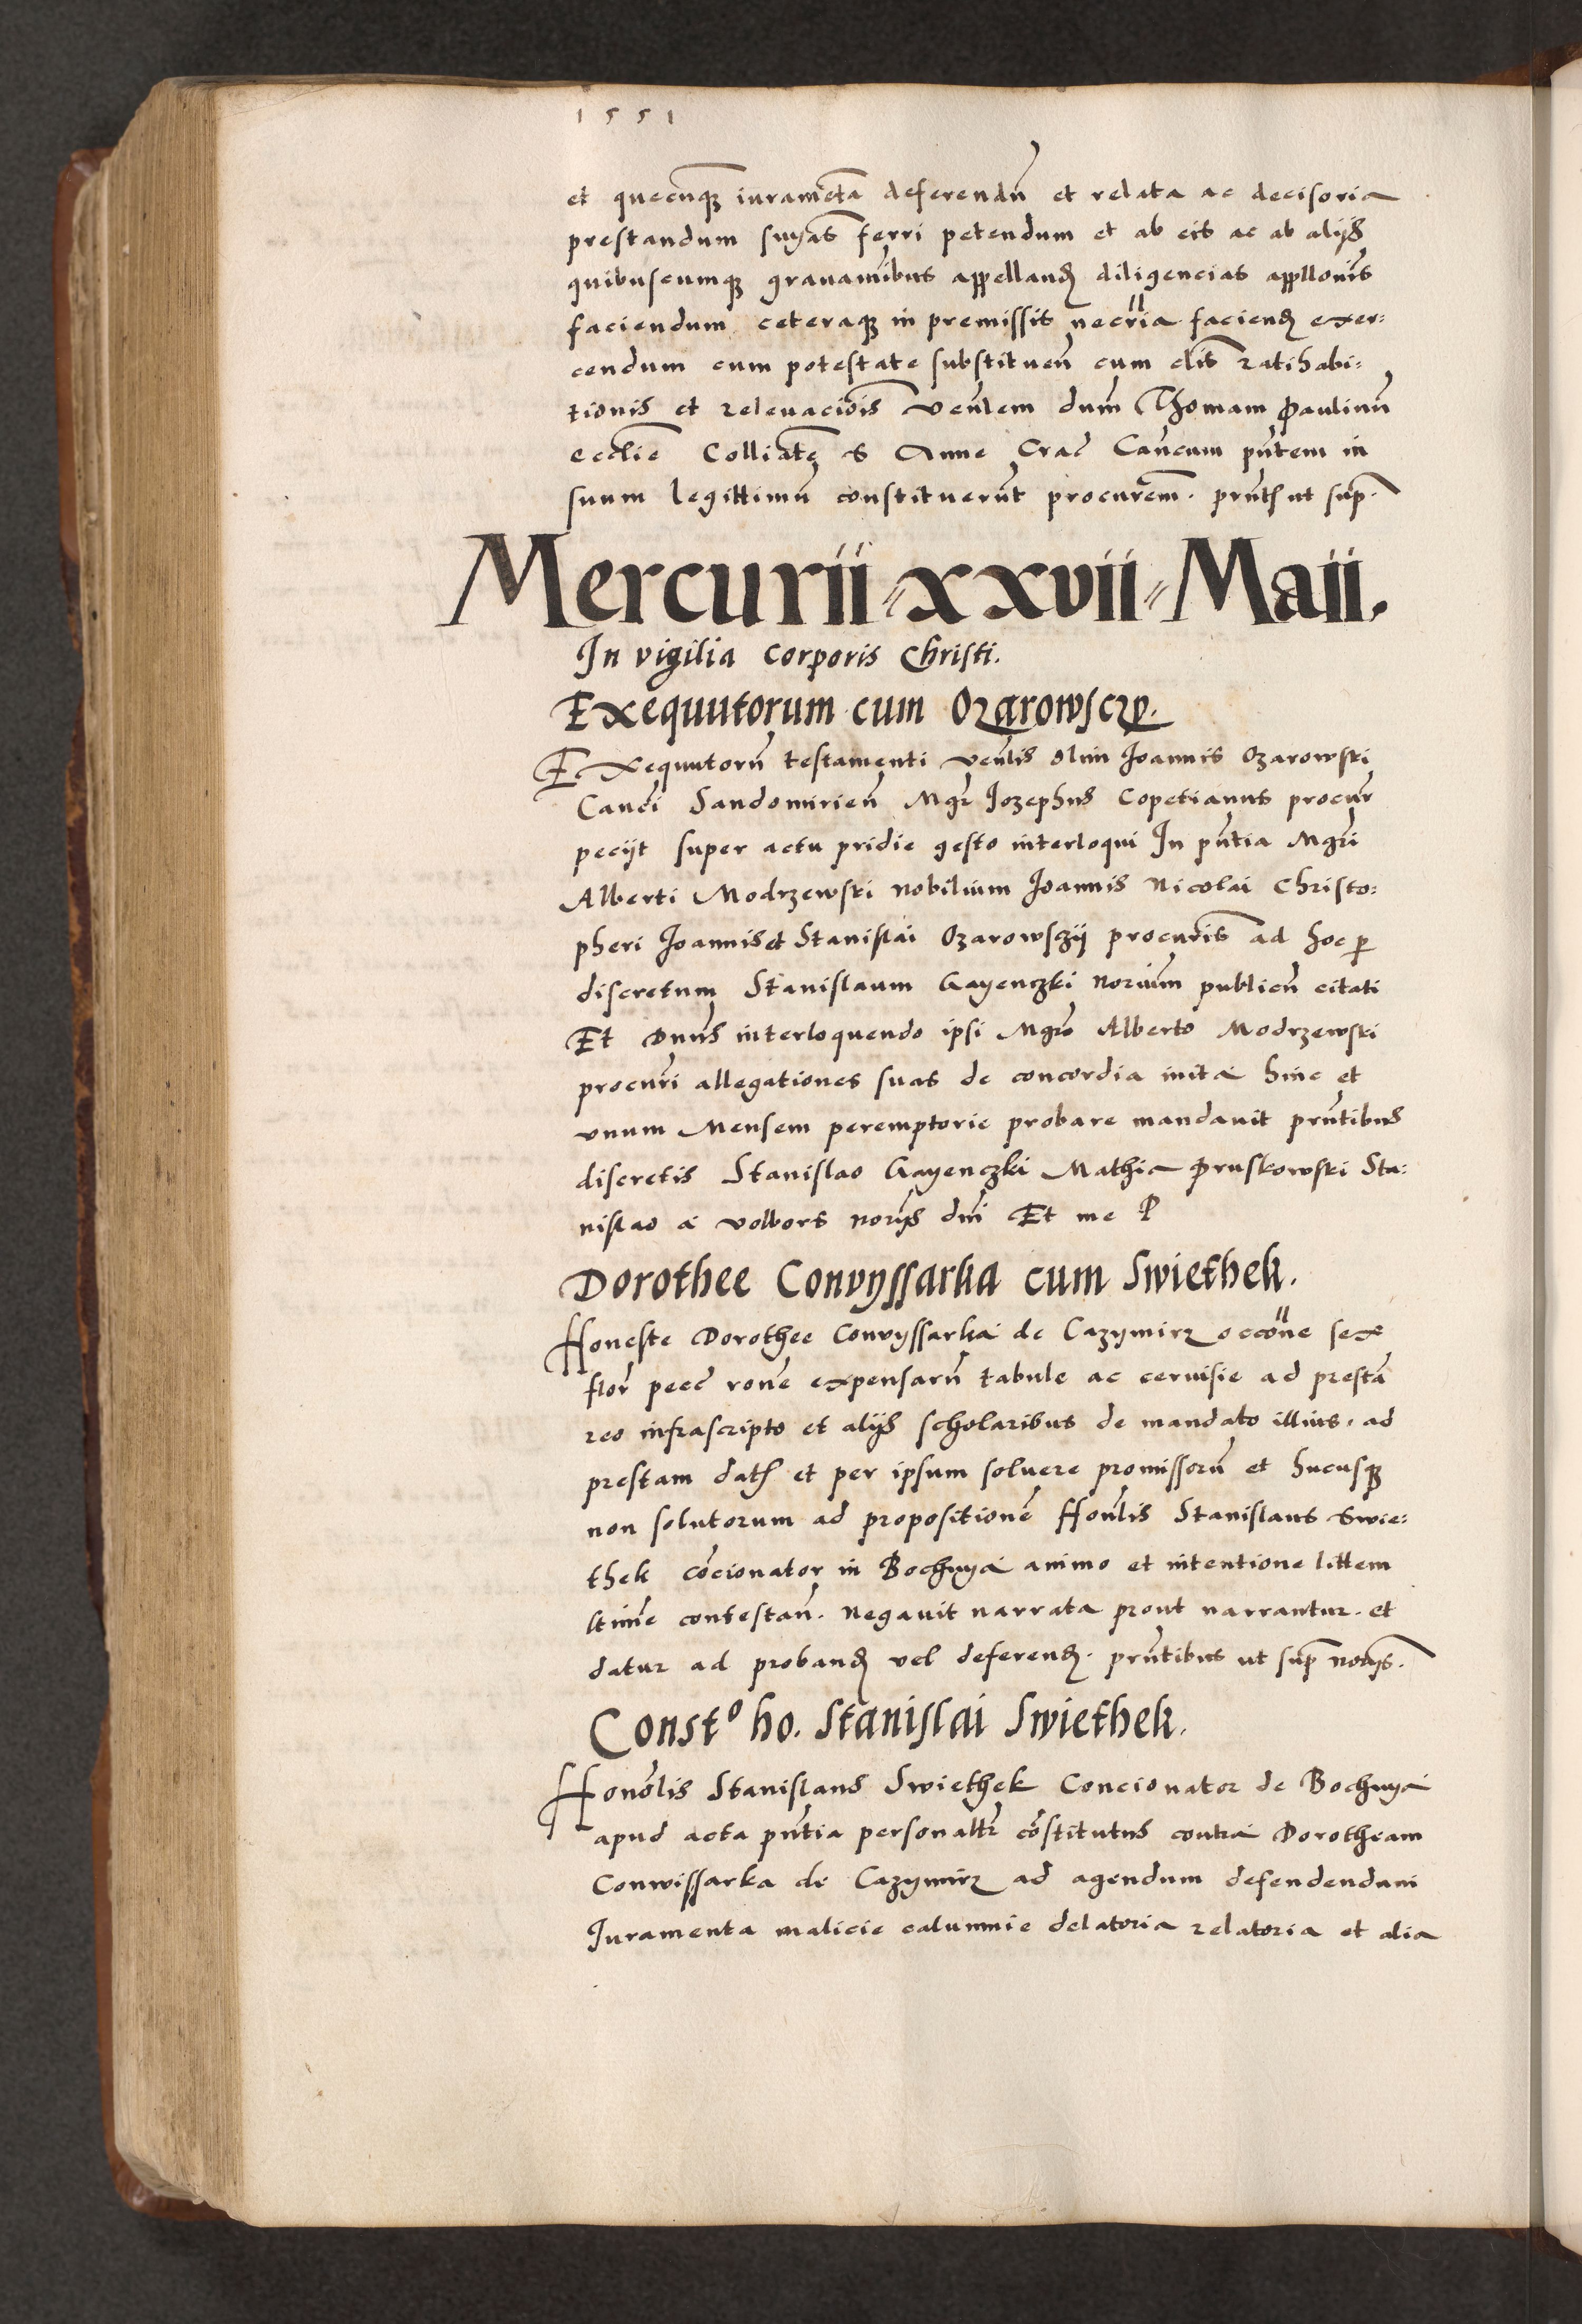 1551
et quecunq̃ iuramẽta deferendũ et relata ac decisoria
prestandum suꝑ ferri petendum et ab eis ac ab alijs
quibuscumqꝫ grauamĩbus appellandꝫ diligencias appllonis
faciendum ceteraqꝫ in premissis necria faciendꝫ exer=
cendum cum potestate substituen̄ cum clis ratihabi=
tionis et releuaciõis Venlem dnm̃ Thomam Paulinũ
ecclie Colliate S Anne Crac̃ Cancum pñtem in
suum legittimũ constituerũt procurem̃. prñtꝫ ut sup̃.
Mercurii xxvii Maii.
In vigilia Corporis Christi.
Exequutorum cum Ozarowsczy.
Exequutorũ testamenti venlis olim Ioannis Ozarowski
Canci Sandomirien̄ Mgr̃ Iozephus Copetianus procur̃
pecijt super actu pridie gesto interloqui In pñtia Mgri
Alberti Modrzewski nobilium Ioannis Nicolai Christo=
pheri Ioannis et Stanislai Ozarowsczij procuris̃ ad hoc ꝑ
discretum Stanislaum Gayenczki norium̃ publicũ citati
Et Dnus̃ interloquendo ipsi Mgro Alberto Modrzewski
procuri allegationes suas de concordia inita hinc et
vnum Mensem peremptorie probare mandauit prñtibus
discretis Stanislao Gayenczki Mathia Pruskowski Sta=
nislao a volbors norijs dni Et me P
Dorothee Convyssarka cum Swiethek.
Honeste Dorothee Convyssarka de Cazymirz occõne sex
flor̃ pecc̃ rone expensarũ tabule ac ceruisie ad prestã
reo infrascripto et alijs scholaribus de mandato illius. ad
prestam datꝫ et per ipsum soluere promissorũ et hucusqꝫ
non solutorum ad propositionẽ Honlis Stanislaus Swie=
thek cõcionator in Bochnya animo et intentione littem
ltime contestañ. negauit narrata prout narrantur. et
datur ad probandꝫ vel deferendꝫ. prñtibus ut sup̃ norijs.
Const° ho. Stanislai Swiethek.
Honorlis Stanislaus Swiethek Concionator de Bochnya
apud acta pñtia personaltr̃ cõstitutus contra Dorotheam
Conwissarka de Cazymirz ad agendum defendendum
Iuramenta malicie calumnie delatoria relatoria et alia